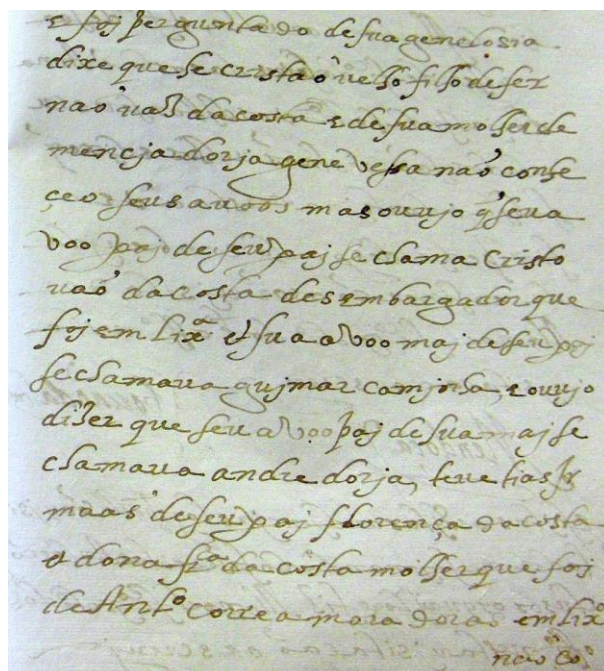 e foj perguntado de sua genelosia
dixe que he cristaõ velho filho de fer
naõ vaz da costa e de sua molher de
mencja dorja genevesa naõ conhe
ceo seus avoos mas ouvjo q̃ seu a
voo paj de seu paj se chama Cristo
vaõ da costa desembargador que
foj em lixª e sua avoo maj de seu paj
se chamava gujmar camjnha, e ouvjo
dizer que seu avoo paj de sua maj se
chamava andre dorja, teve tias jr
maãs de seu paj florença da costa
e dona frª da costa molher que foj
de Antº correa moradoras em lixª
naõ co